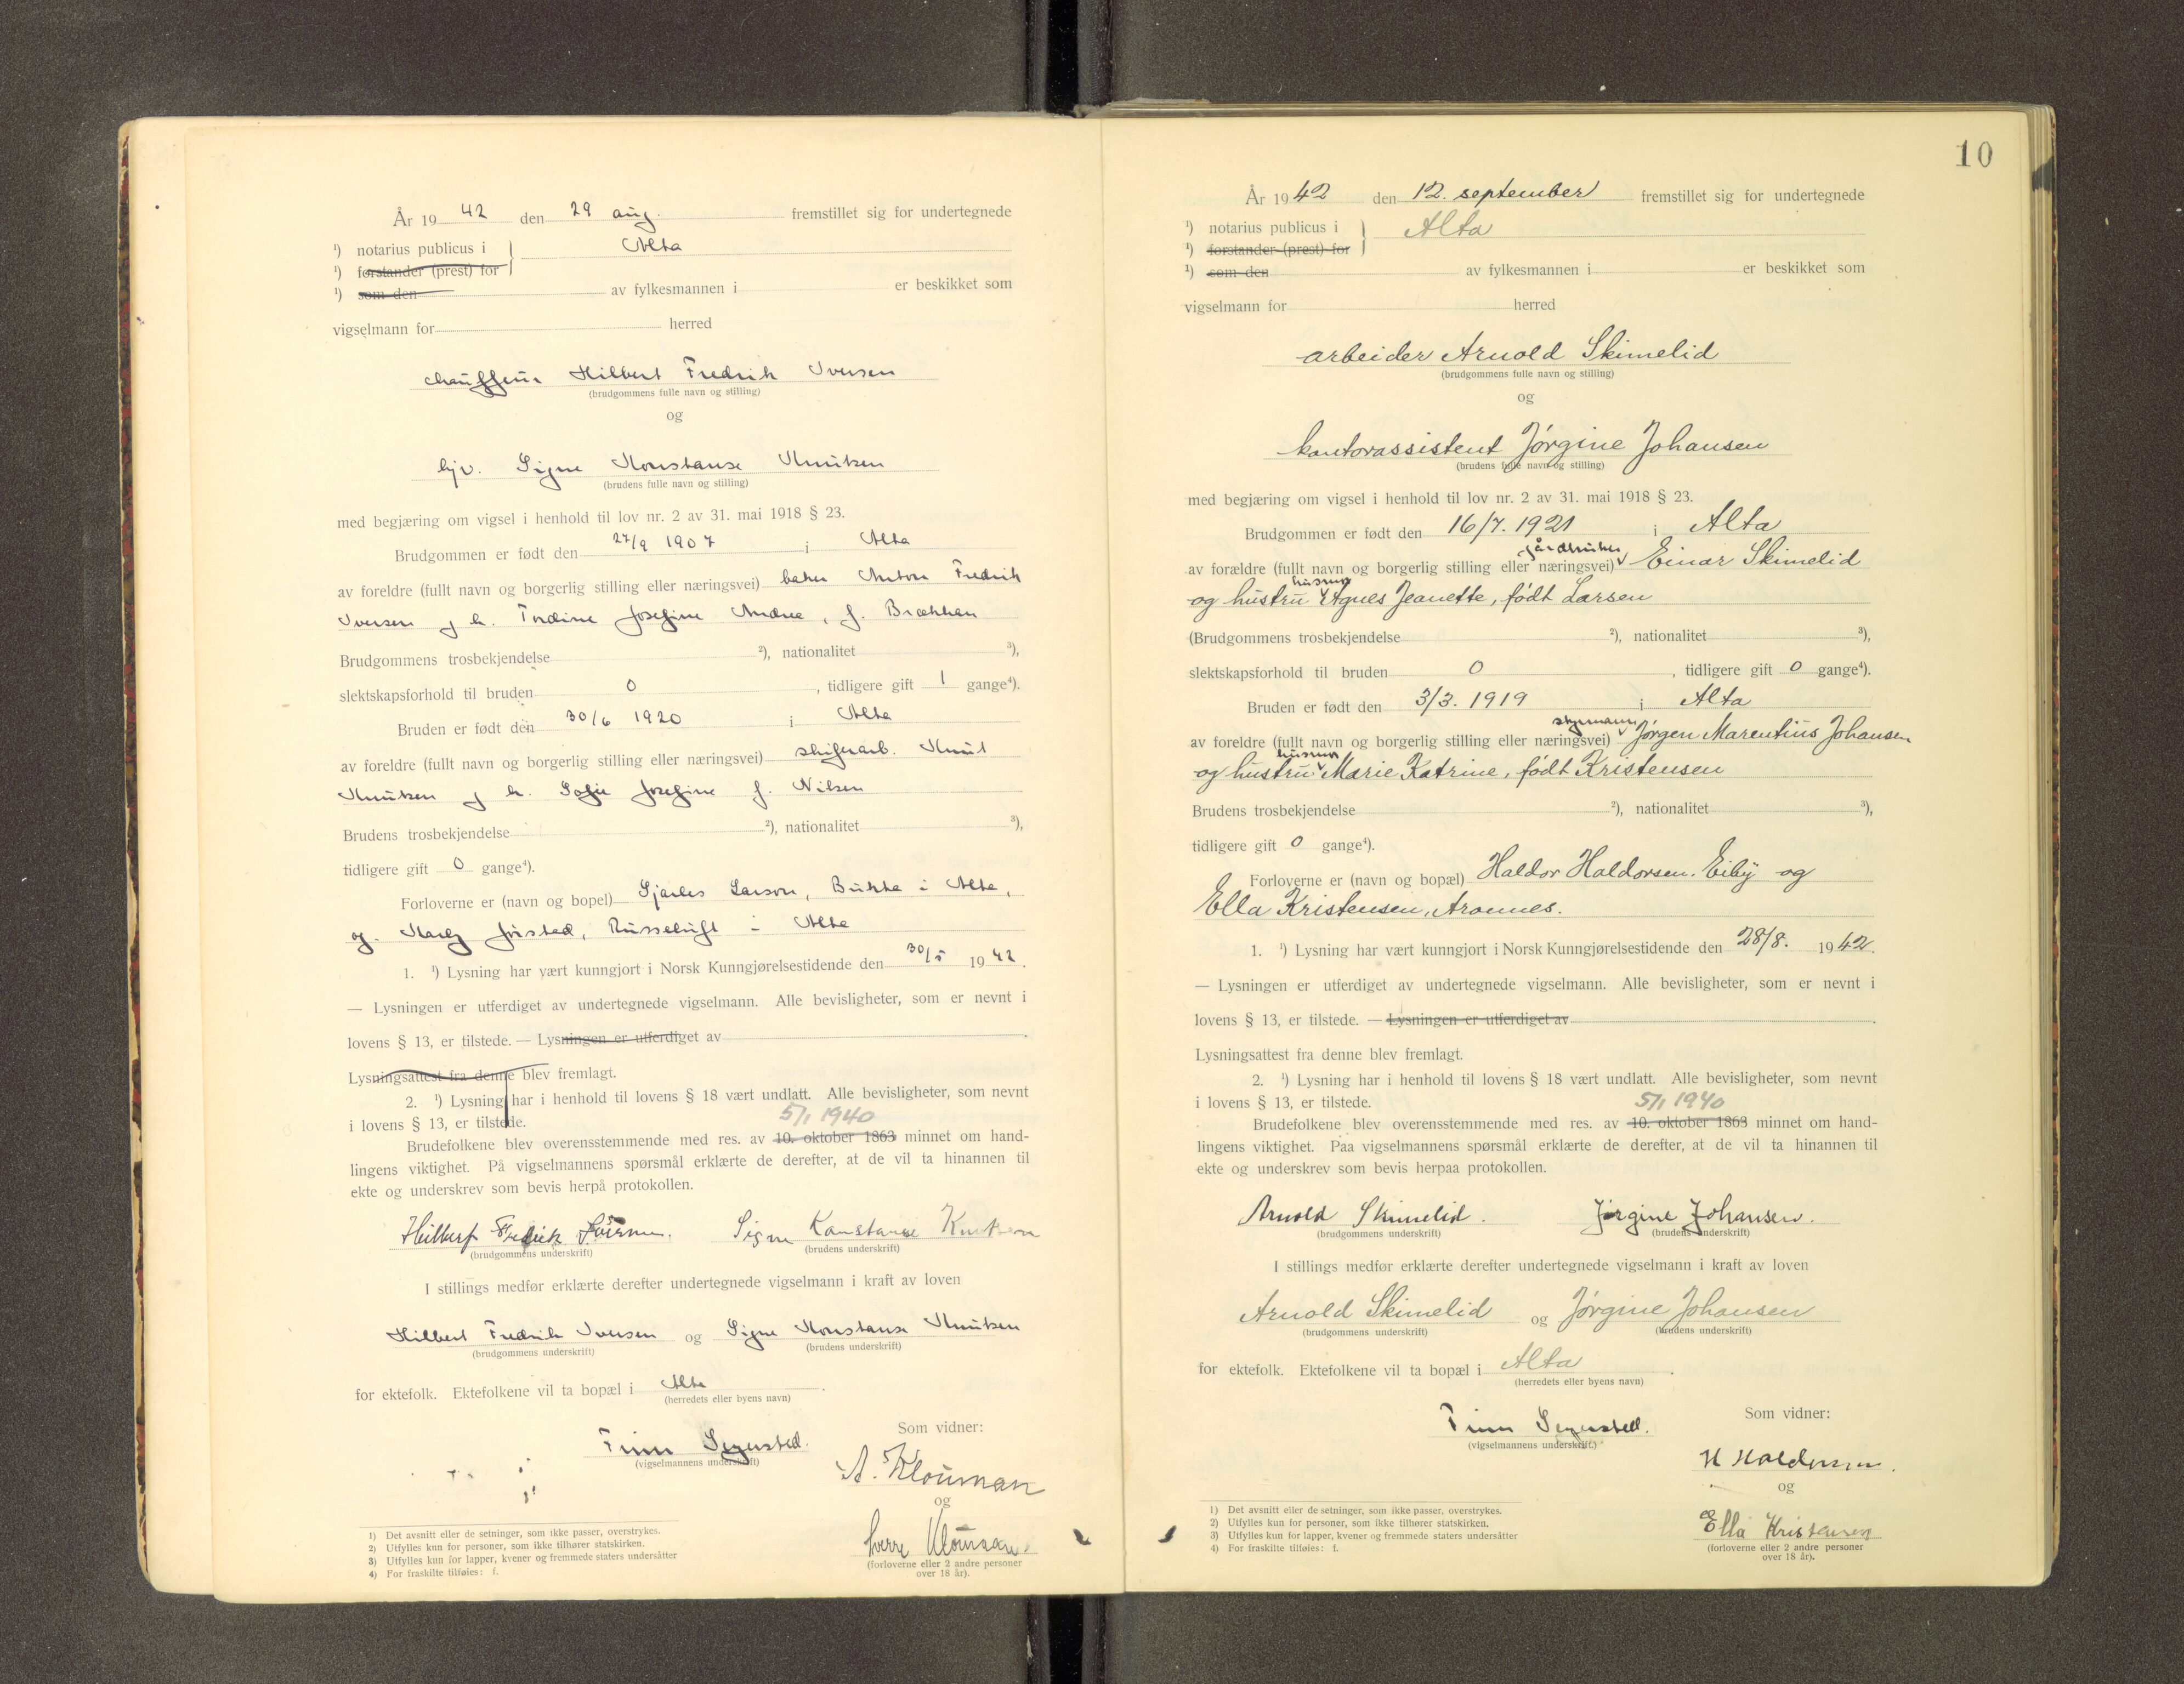 År 19 42 den 29 aug. fremstillet sig for undertegnede
¹) notarius publicus i Alta
¹) forstander (prest) for
¹) som den av fylkesmannen i er beskikket som
vigselmann for herred
chauffeur Hilbert Fredrik Iversen
(brudgommens fulle navn og stilling)
og
hjv. Signe Konstanse Knutsen
(brudens fulle navn og stilling)
med begjæring om vigsel i henhold til lov nr. 2 av 31. mai 1918 § 23.
Brudgommen er født den 27/9 1907 i Alta
av foreldre (fullt navn og borgerlig stilling eller næringsvei) baker Anton Fredrik
Iversen og h. Tordine Josefine Andrea, f. Brækkan
Brudgommens trosbekjendelse ²), nationalitet ³),
slektskapsforhold til bruden 0, tidligere gift 1 gange⁴).
Bruden er født den 30/6 1920 i Alta
av foreldre (fullt navn og borgerlig stilling eller næringsvei) skiferarb. Knut
Knutsen og h. Sofie Josefine f. Nilsen
Brudens trosbekjendelse ²), nationalitet ³),
tidligere gift 0 gange⁴).
Forloverne er (navn og bopel) Sjarles Larson, Bukta i Alta,
og Jøsted, Russeluft i Alta
1. ¹) Lysning har vært kunngjort i Norsk Kunngjørelsestidende den 30/5 1942.
— Lysningen er utferdiget av undertegnede vigselmann. Alle bevisligheter, som er nevnt i
lovens § 13, er tilstede. — Lysningen er utferdiget av
Lysningsattest fra denne blev fremlagt.
2. ¹) Lysning har i henhold til lovens § 18 vært undlatt. Alle bevisligheter, som nevnt
i lovens § 13, er tilstede.
5/1 1940
Brudefolkene blev overensstemmende med res. av 10. oktober 1863 minnet om hand-
lingens viktighet. På vigselmannens spørsmål erklærte de derefter, at de vil ta hinannen til
ekte og underskrev som bevis herpå protokollen.
Hilbert Fredrik Iversen. Signe Konstanse Knutsen
(brudgommens underskrift) (brudens underskrift)
I stillings medfør erklærte derefter undertegnede vigselmann i kraft av loven
Hilbert Fredrik Iversen og Signe Konstanse Knutsen
(brudgommens underskrift) (brudens underskrift)
for ektefolk. Ektefolkene vil ta bopæl i Alta.
(herredets eller byens navn)
Som vidner:
Finn Segusted.
(vigselmannens underskrift)
A. Klouman
og
Sverre Klouman
(forloverne eller 2 andre personer
over 18 år).
1) Det avsnitt eller de setninger, som ikke passer, overstrykes.
2) Utfylles kun for personer, som ikke tilhører statskirken.
3) Utfylles kun for lapper, kvener og fremmede staters undersåtter
4) For fraskilte tilføies: f.
10
År 1942 den 12. september fremstillet sig for undertegnede
¹) notarius publicus i Alta
¹) forstander (prest) for
¹) som den av fylkesmannen i er beskikket som
vigselmann for herred
arbeider Arnold Skimelid
(brudgommens fulle navn og stilling)
og
kontorassistent Jørgine Johansen
(brudens fulle navn og stilling)
med begjæring om vigsel i henhold til lov nr. 2 av 31. mai 1918 § 23.
Brudgommen er født den 16/7. 1921 i Alta
gårdbruker
av forældre (fullt navn og borgerlig stilling eller næringsvei) Einar Skimelid
husmor
og hustru Agnes Jeanette, født Larsen
(Brudgommens trosbekjendelse ²), nationalitet ³),
slektskapsforhold til bruden 0, tidligere gift 0 gange⁴).
Bruden er født den 3/3. 1919 i Alta
styrmann
av foreldre (fullt navn og borgerlig stilling eller næringsvei) Jørgen Marentius Johansen
husmor
og hustru Marie Katrine, født Kristensen
Brudens trosbekjendelse ²), nationalitet ³),
tidligere gift 0 gange⁴).
Forloverne er (navn og bopæl) Haldor Haldorsen. Eiby og
Ella Kristensen, Aronnes.
1. ¹) Lysning har vært kunngjort i Norsk Kunngjørelsestidende den 28/8. 1942.
— Lysningen er utferdiget av undertegnede vigselmann. Alle bevisligheter, som er nevnt i
lovens § 13, er tilstede. — Lysningen er utferdiget av
Lysningsattest fra denne blev fremlagt.
2. ¹) Lysning har i henhold til lovens § 18 vært undlatt. Alle bevisligheter, som nevnt
i lovens § 13, er tilstede.
5/1 1940
Brudefolkene blev overensstemmende med res. av 10. oktober 1863 minnet om hand-
lingens viktighet. Paa vigselmannens spørsmål erklærte de derefter, at de vil ta hinannen til
ekte og underskrev som bevis herpaa protokollen.
Arnold Skimelid. Jørgine Johansen.
(brudgommens underskrift) (brudens underskrift)
I stillings medfør erklærte derefter undertegnede vigselmann i kraft av loven
Arnold Skimelid og Jørgine Johansen
(brudgommens underskrift) (brudens underskrift)
for ektefolk. Ektefolkene vil ta bopæl i Alta.
(herredets eller byens navn)
Som vidner:
Finn Segusted.
(vigselmannens underskrift.)
H Haldorsen.
og
Ella Kristensen
(forloverne eller 2 andre personer
over 18 år).
1) Det avsnitt eller de setninger, som ikke passer, overstrykes.
2) Utfylles kun for personer, som ikke tilhører statskirken.
3) Utfylles kun for lapper, kvener og fremmede staters undersåtter
4) For fraskilte tilføies: f.